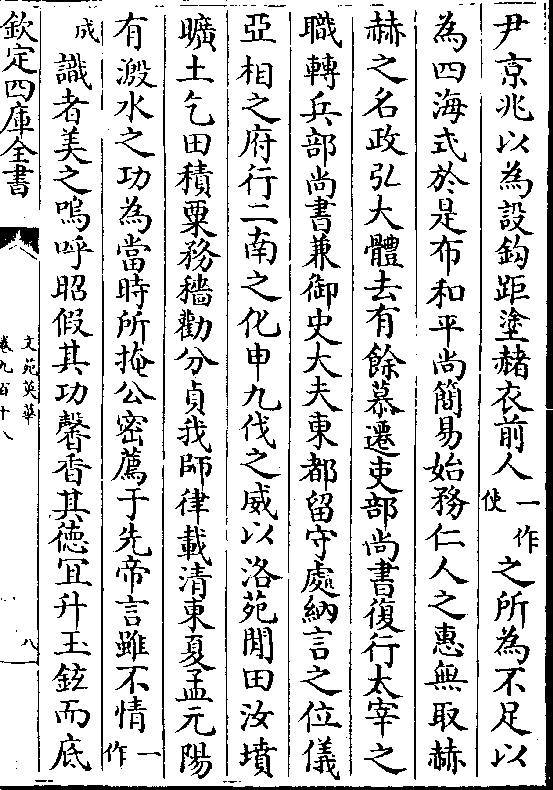 尹京兆以為設鈎距塗赭衣前人一作使之所為不足以
為四海式於是布和平尚簡易始務仁人之惠無取赫
赫之名政弘大體去有餘慕遷吏部尚書復行太宰之
職轉兵部尚書兼御史大夫東都留守處納言之位儀
亞相之府行二南之化申九伐之威以洛苑閒田汝墳
曠土乞田積粟務穡勸分貞我師律載清東夏孟元陽
有溵水之功為當時所掩公密薦于先帝言雖不情一作
成識者美之嗚呼昭假其功馨香其德冝升玉鉉而底
欽定四庫全書
文苑英華
卷九百十八
八